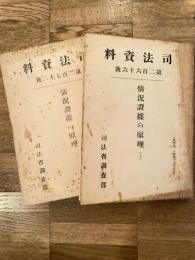 司法資料
第二百六十六號
情況證據の原理（上）
司法省調査部
司法資料
第二百七十二號
情況證據の原理
司法省調査部